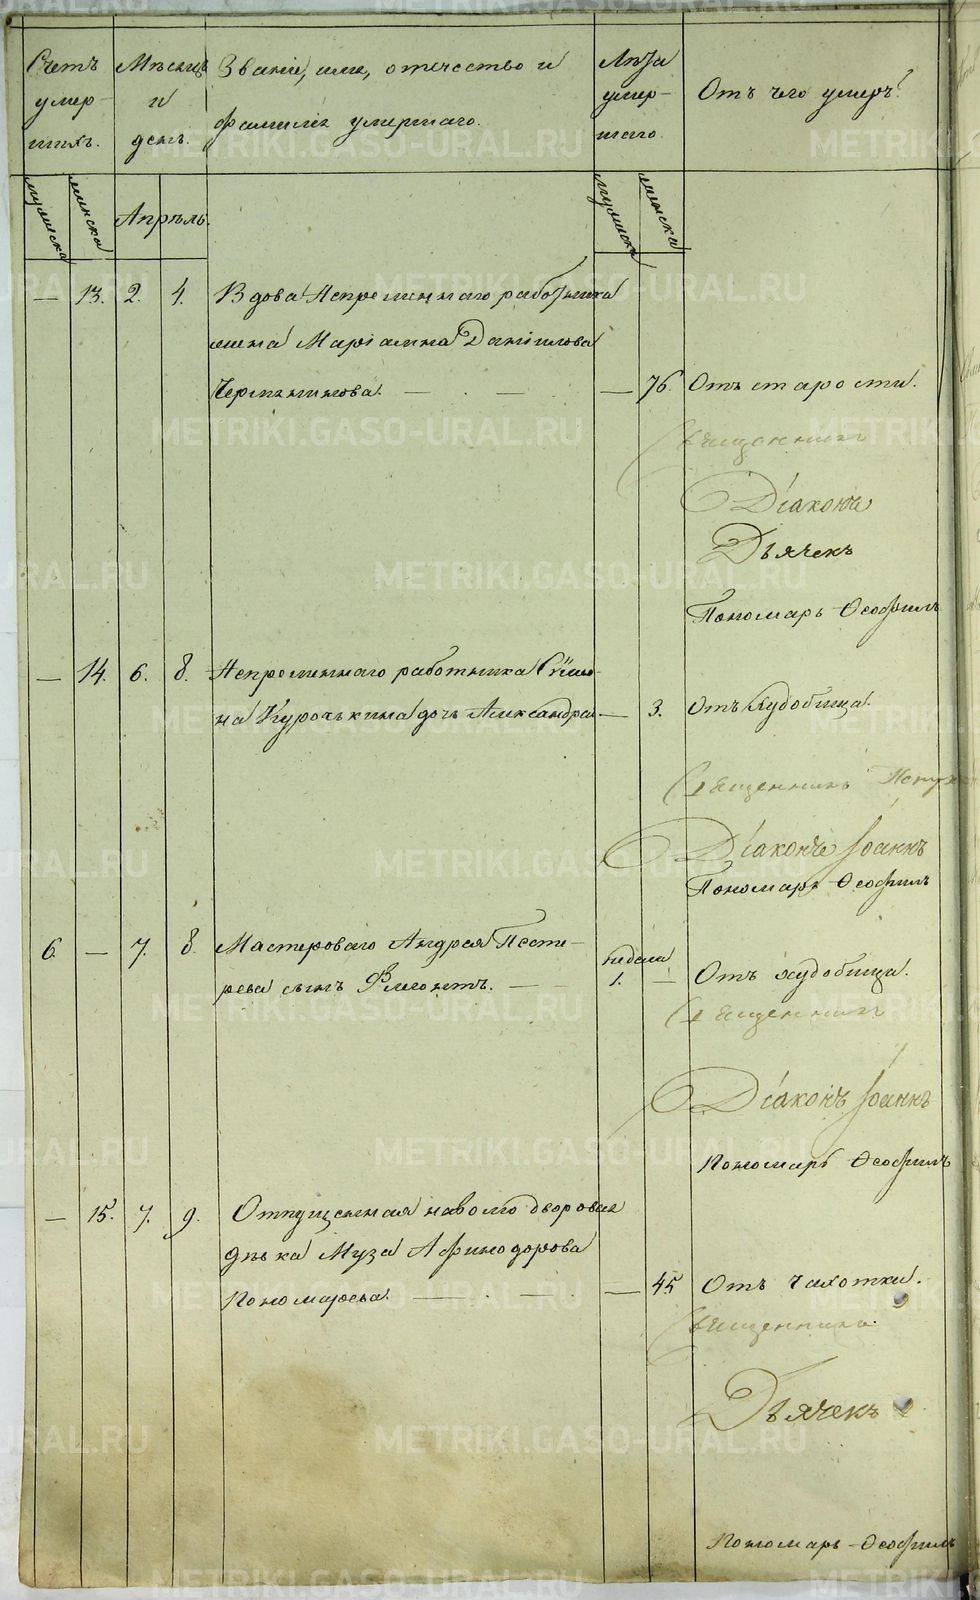 Счетъ умер- шихъ.
Мѣсяцъ и день.
Званіе, имя, отечество и
фамилія умершаго.
Лѣта умер- шаго.
Отъ чего умеръ?
мужеска
женска
Апрѣль.
мужеска
женска
— 13. 2. 4. Вдова Непремѣннаго работника
жена Маріамна Даніилова
— 76. Отъ старости.
Священникъ
Діаконъ
Дьячекъ
Пономарь Ѳеофилъ
— 14. 6. 8. Непремѣннаго работника
на Курочкина дочь Александра — 3. Отъ худобища.
Священникъ
Діаконъ Іоаннъ
Пономарь Ѳеофилъ
6. — 7. 8. Мастероваго Андрея Песте-
рева сынъ недели 1. — Отъ худобища.
Священникъ
Діаконъ Іоаннъ
Пономарь Ѳеофилъ
— 15. 7. 9. Отпущенная наволю дворовая
дѣвка Муза Афинодорова
Пономарева. — 45 Отъ чахотки.
Священникъ
Дьячекъ
Пономарь Ѳеофилъ
METRIKI.GASO-URAL.RU